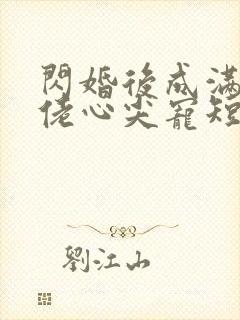 閃婚後成滿
佬心尖寵短
劉江山